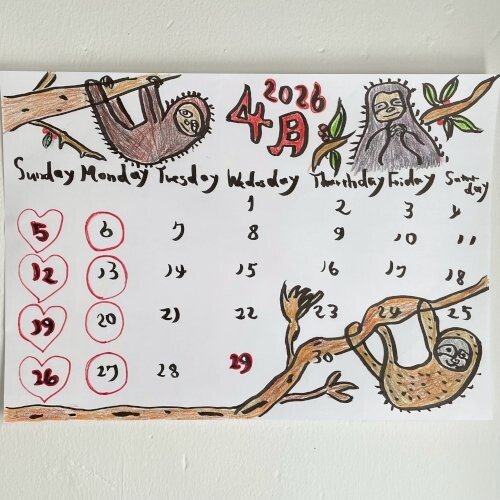 2026
4月
Sunday Monday Tuesday Wedasday Thurthday Friday Saturday
1 2 3 4
5 6 7 8 9 10 11
12 13 14 15 16 17 18
19 20 21 22 23 24 25
26 27 28 29 30